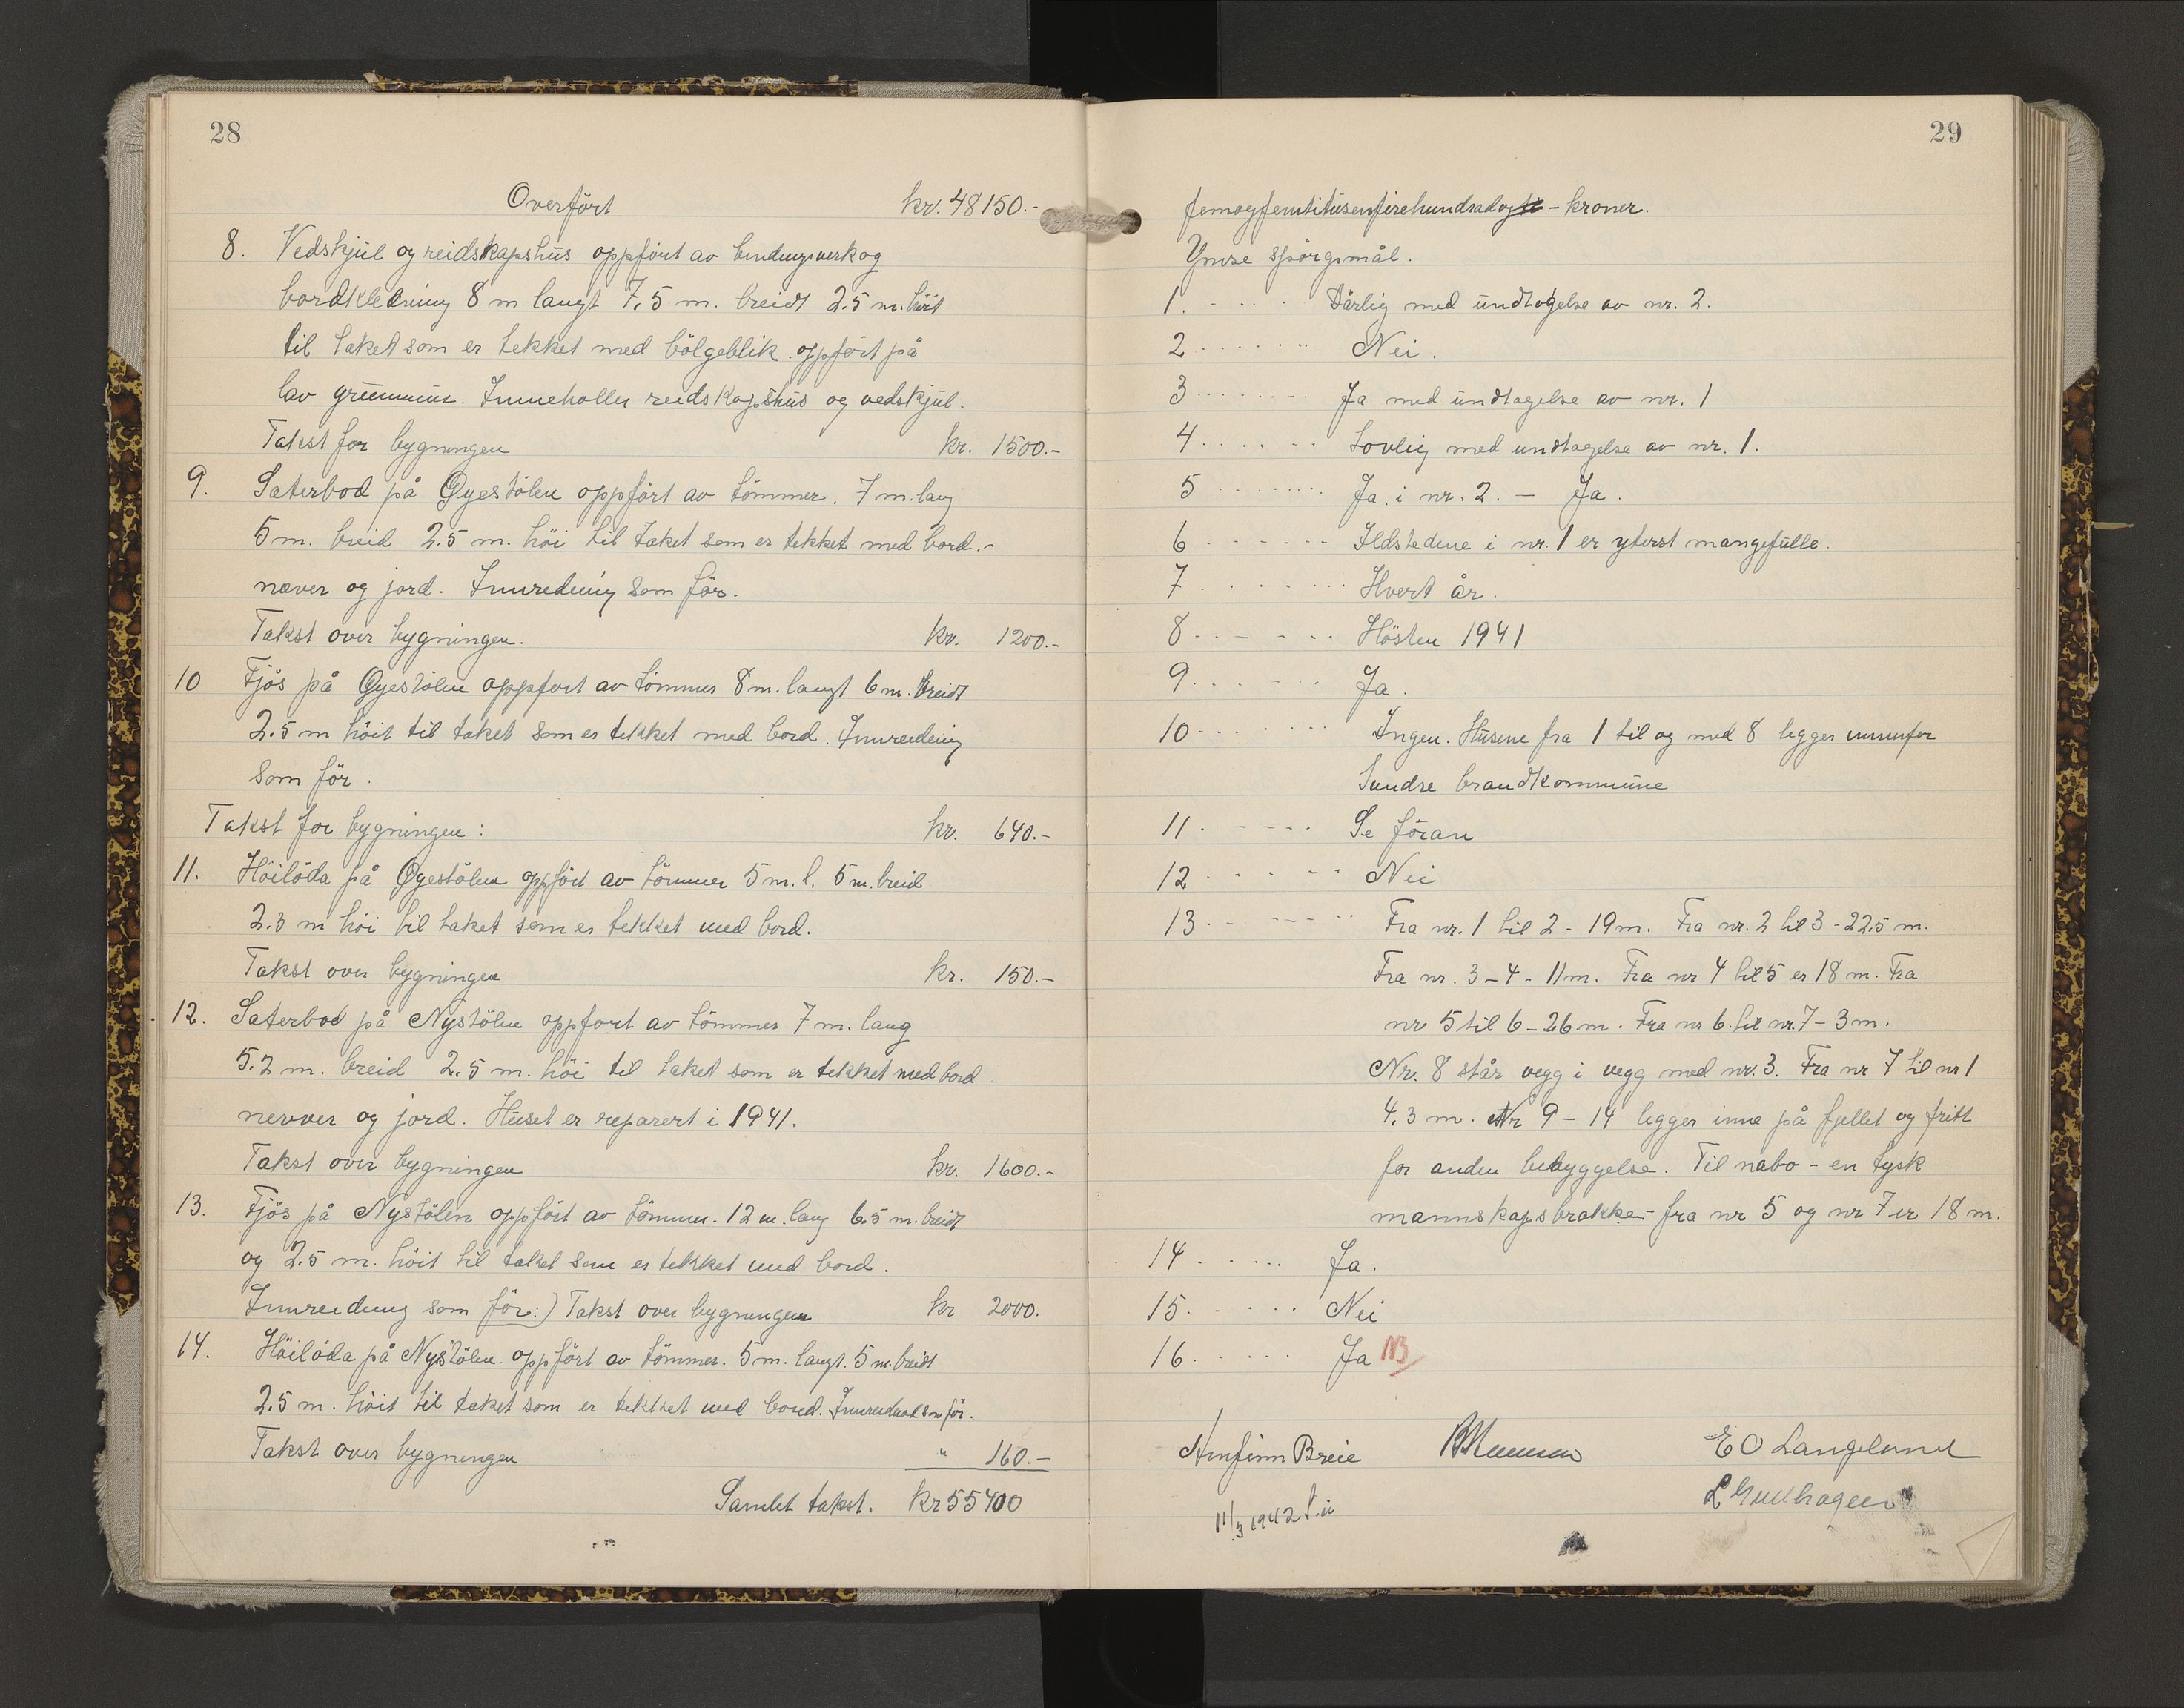 28
Overført kr. 48150.-
8. Vedskjul og reidskapshus oppført av bindingsverk og
bordkledning 8 m langt 7.5 m. breidt 2.5 m. höit
til taket som er tekket med bölgeblik. oppført på
lav grunmur. Inneholler reidskapshus og vedskjul.
Takst for bygningen kr. 1500.-
9. Saterbod på Øyestölen oppfört av tömmer. 7 m. lang
5 m. breid 2.5 m. höi til taket som er tekket med bord.-
næver og jord. Innredning som för.
Takst over bygningen. kr. 1200.-
10 Fjös på Øyestölen oppfort av tömmer 8 m. langt 6 m. breidt
2.5 m höit til taket som er tekket med bord. Innredning
som för.
Takst for bygningen: kr. 640.-
11. Höilöda på Øyestölen oppfört av tömmer 5 m. l. 5 m. breid
2.3 m höi til taket som er tekket med bord.
Takst over bygningen kr. 150.-
12. Saterbod på Nystölen oppfort av tömmer 7 m. lang
5.2 m. breid 2.5 m. höi til taket som er tekket med bord
nevver og jord. Huset er reparert i 1941.
Takst over bygningen kr. 1600.-
13. Fjös på Nystölen oppfört av tömmer. 12 m. lang 6.5 m. breidt
og 2.5 m. höit til taket som er tekket med bord.
Innreidning som för:) Takst over bygningen kr 2000.
14. Höilöda på Nystölen. oppfört av tömmer. 5 m. langt. 5 m. breidt
2.5 m. höit til taket som er tekket med bord. som för.
Takst over bygningen " 160.-
Samlet takst. kr 55400
29
femogfemtitusenfirehundrad - kroner.
Ymse spörgsmål.
1. Dårlig med undtagelse av nr. 2.
2 Nei.
3 Ja med undtagelse av nr. 1
4 Lovlig med undtagelse av nr. 1.
5 Ja. i nr. 2. — Ja.
6 Ildstedene i nr. 1 er yterst mangefulle.
7 Hvert år.
8 Hösten 1941
9 Ja.
10 Ingen. Husene fra 1 til og med 8 legger innenfor
Sundre brandkommune
11. Se föran
12 Nei
13 Fra nr. 1 til 2 - 19 m. Fra nr. 2 til 3 - 22.5 m.
Fra nr. 3-4 - 11 m. Fra nr 4 til 5 er 18 m. Fra
nr 5 til 6 - 26 m. Fra nr 6. til nr. 7 - 3 m.
Nr. 8 står vegg i vegg med nr. 3. Fra nr 7 til nr 1
4.3 m. Nr 9 - 14 legger inne på fjellet og fritt
for anden bebyggelse. Til nabo - en tysk
mannskapsbrakke - fra nr 5 og nr 7 er 18 m.
14 Ja.
15. Nei
16. Ja NB
Arnfinn Breie E O Langeland
11/3 1942